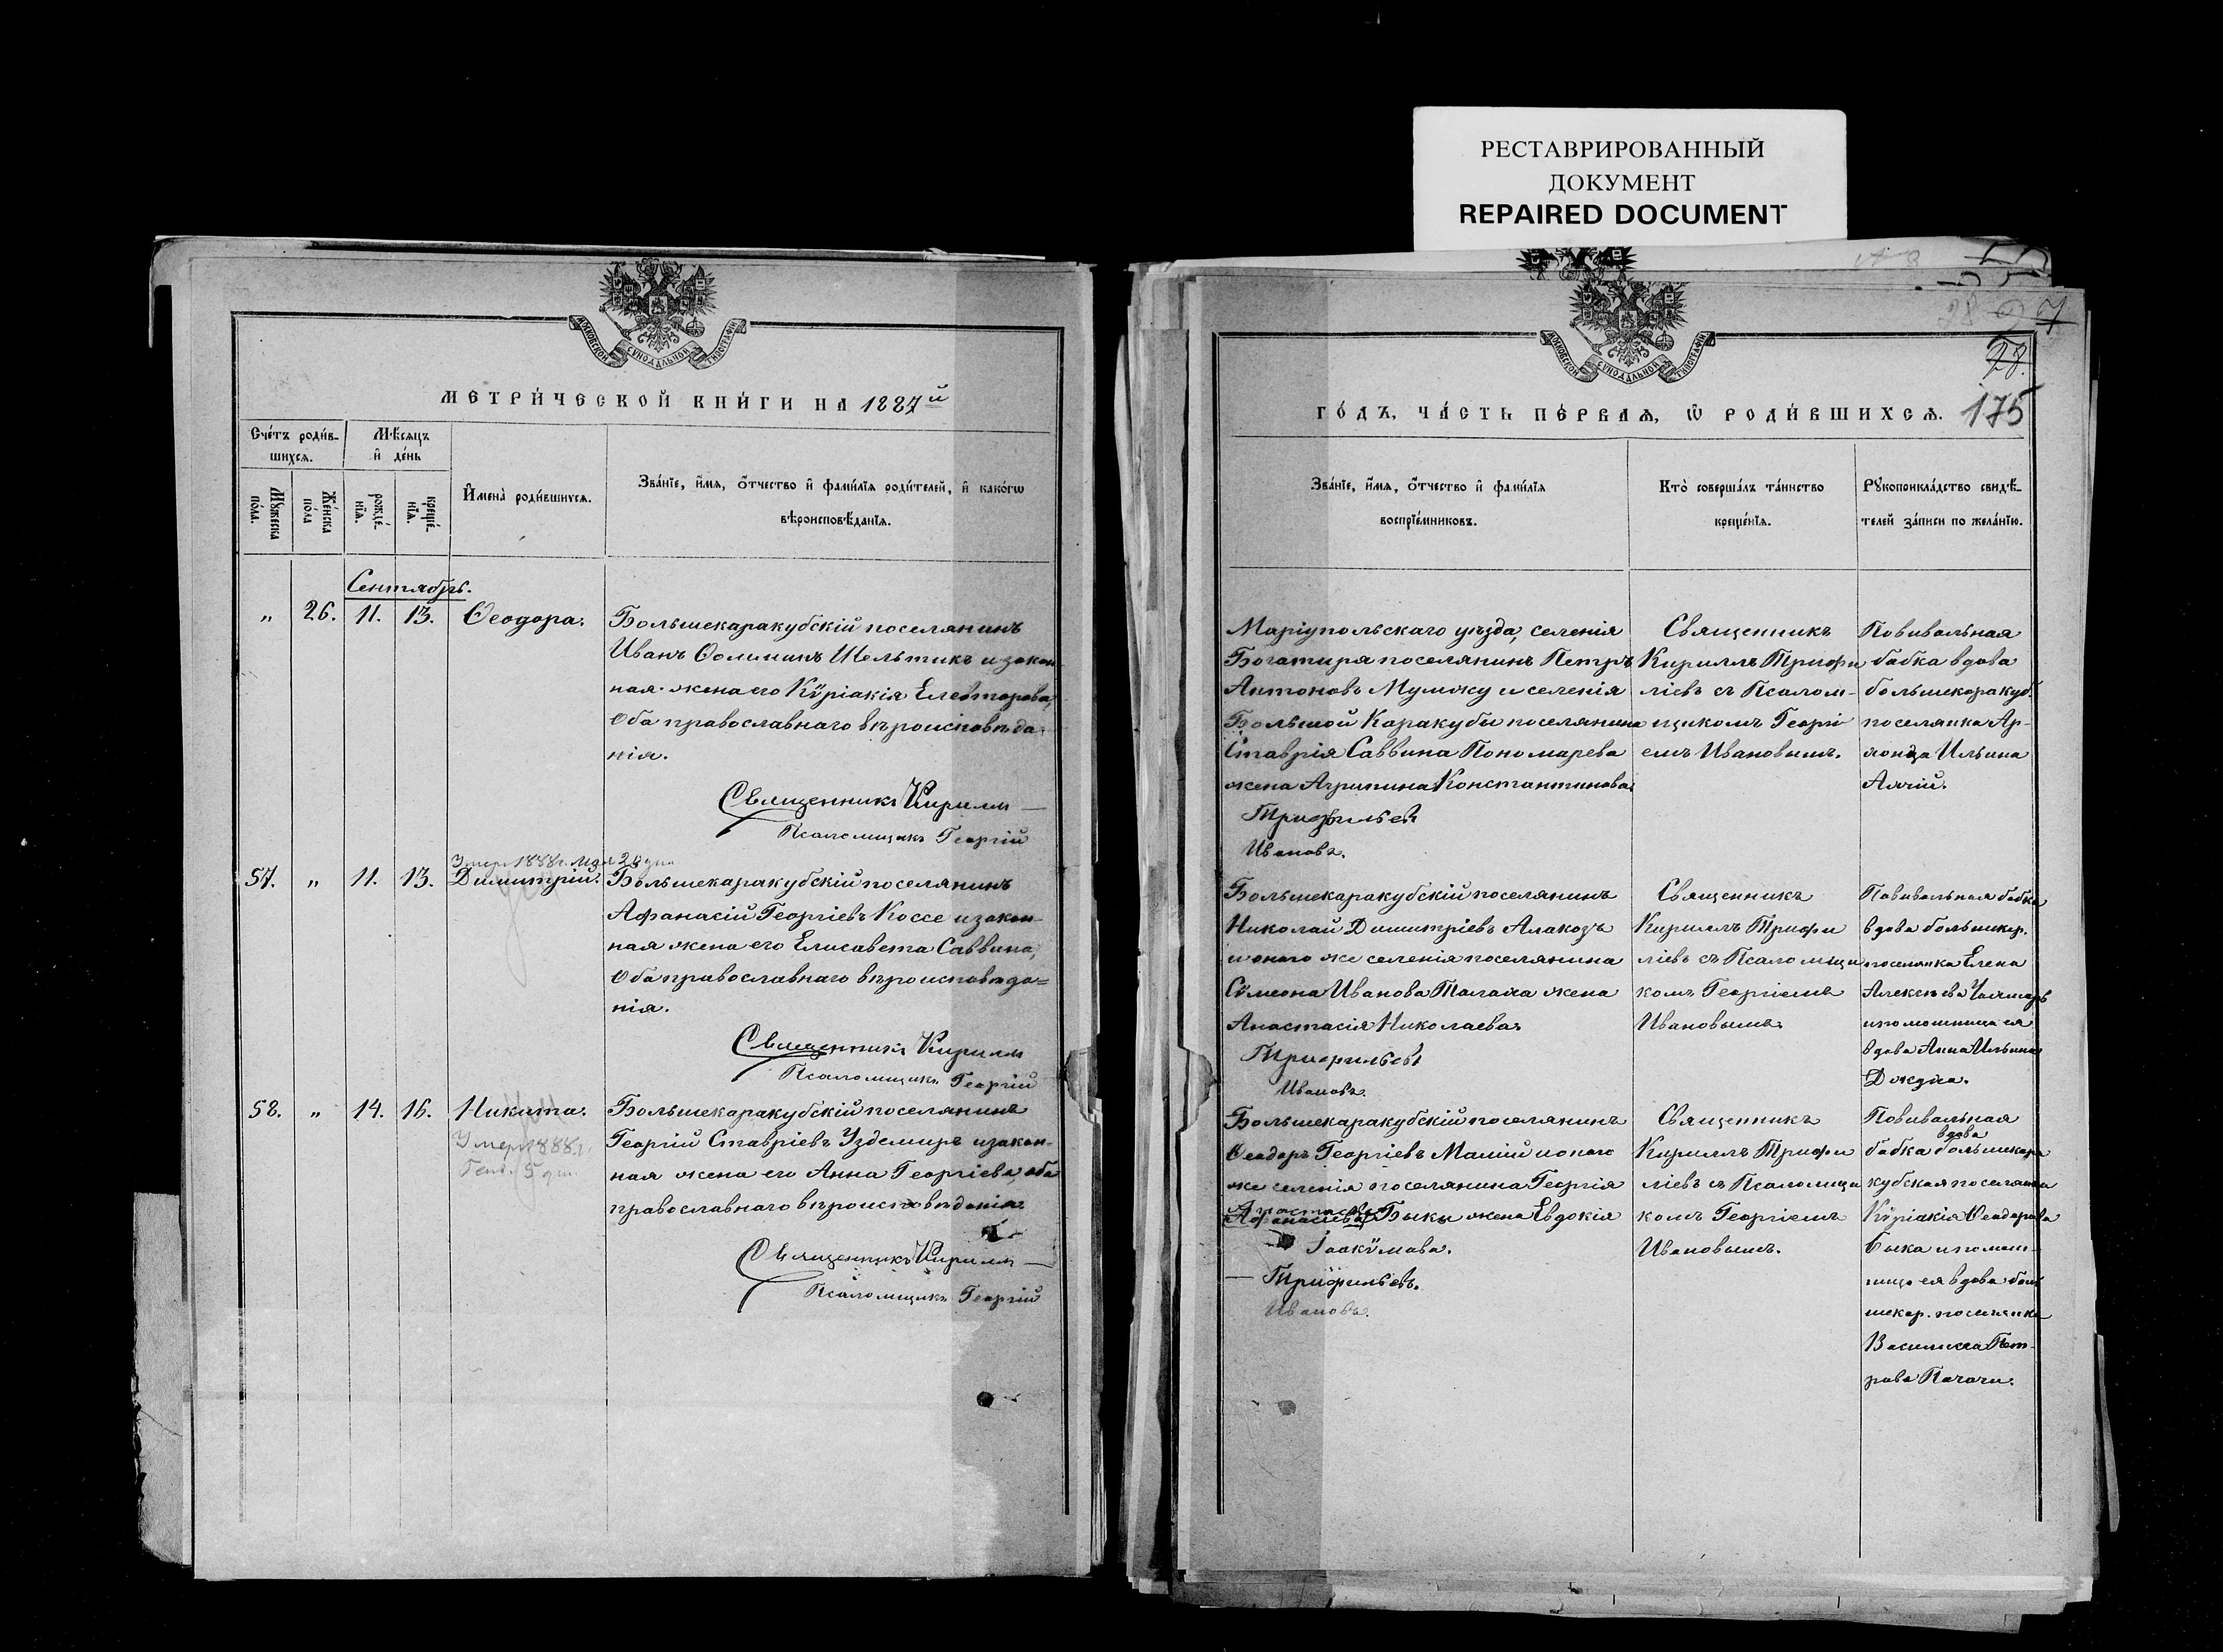 РЕСТАВРИРОВАННЫЙ
ДОКУМЕНТ
REPAIRED DOCUMENT
МОСКОВСКОЙ СѴНОДАЛЬНОЙ ТИПОГРАФІИ
МЕТРИ́ЧЕСКОЙ КНИ́ГИ НА 1887й
Сче́тъ роди́в-
шихся.
Мѣсяцъ
и҆ де́нь
Мꙋжеска
по́ла.
Же́нска
по́ла
рожде́-
нїя.
креще́-
нїя.
И҆мена̀ роди́вшихся.
Зва́нїе, и҆́мя, ѻ҆́тчество и҆ фами́лїя роди́телей, и҆ како́гѡ
вѣроисповѣ́данїя.
Сентябрь.
„ 26. 11. 13. Ѳеодора.
Большекаракубскій поселянинъ
Иванъ Ѳоминъ Шельтикъ и закон-
ная жена его Кѵріакія Елевтерова,
оба православнаго вѣроисповѣда-
нія.
Священникъ Кириллъ
Псаломщикъ Георгій
Умеръ 1888 г. Мая 29 дня
57. „ 11. 13. Димитрій.
Большекаракубскій поселянинъ
Афанасій Георгіевъ Коссе и закон-
ная жена его Елисавета Саввина,
оба православнаго вѣроисповѣда=
нія.
Священникъ Кириллъ
Псаломщикъ Георгій
58. „ 14. 16. Никита.
Умеръ 1888 г.
5 дня
Большекаракубскій поселянинъ
Георгій Ставріевъ Уздемиръ и закон-
ная жена его Анна Георгіева, оба
православнаго вѣроисповѣданія.
Священникъ Кириллъ
Псаломщикъ Георгій
28 27
28.
МОСКОВСКОЙ СѴНОДАЛЬНОЙ ТИПОГРАФІИ
ГО́ДЪ, ЧА́СТЬ ПЕ́РВАЯ, Ѡ҆ РОДИ́ВШИХСЯ. 175
Зва́нїе, и҆́мя, ѻ҆́тчество и҆ фами́лїя
воспрїе́мниковъ.
Кто̀ соверша́лъ та́инство
креще́нїя.
Рꙋкоприкла́дство свидѣ́-
телей за́писи по жела́нїю.
Маріупольскаго уѣзда, селенія
Богатыря поселянинъ Петръ
Антоновъ Мумжу и селенія
Большой Каракубы поселянина
Ставрія Саввина Пономарева
жена Агрипина Константинова.
Трифильевъ
Ивановъ.
Священникъ
Кириллъ Трифи
ліевъ съ Псалом-
щикомъ Георгі
емъ Ивановымъ.
Повивальная
бабка вдова
большекаракуб.
поселянка Ар-
Ильина
Большекаракубскій поселянинъ
Николай Димитріевъ Алакозъ
и оного же селенія поселянина
Сѵмеона Иванова Талаха жена
Анастасія Николаева.
Трифильевъ
Ивановъ.
Священникъ
Кириллъ Трифи
ліевъ съ Псаломщи
комъ Георгіемъ
Ивановымъ.
Повивальная бабка
вдова большекар.
поселянка Елена
Алексѣева
и помошница ея
вдова Анна Ильина
Большекаракубскій поселянинъ
Ѳеодоръ Георгіевъ Малій и оного
же селенія поселянина Георгія
Анастасіева
Афанасіева Быкы жена Евдокія
Іоакѵмова.
Трифильевъ.
Ивановъ.
Священникъ
Кириллъ Трифи
ліевъ съ Псаломщи
комъ Георгіемъ
Ивановымъ.
Повивальная
вдова
бабка большекара
кубская поселянка
Кѵріакія Ѳеодорова
Быка и помош-
ница ея вдова боль
шекар. поселянка
Василисса Пет-
рова Пачачи.